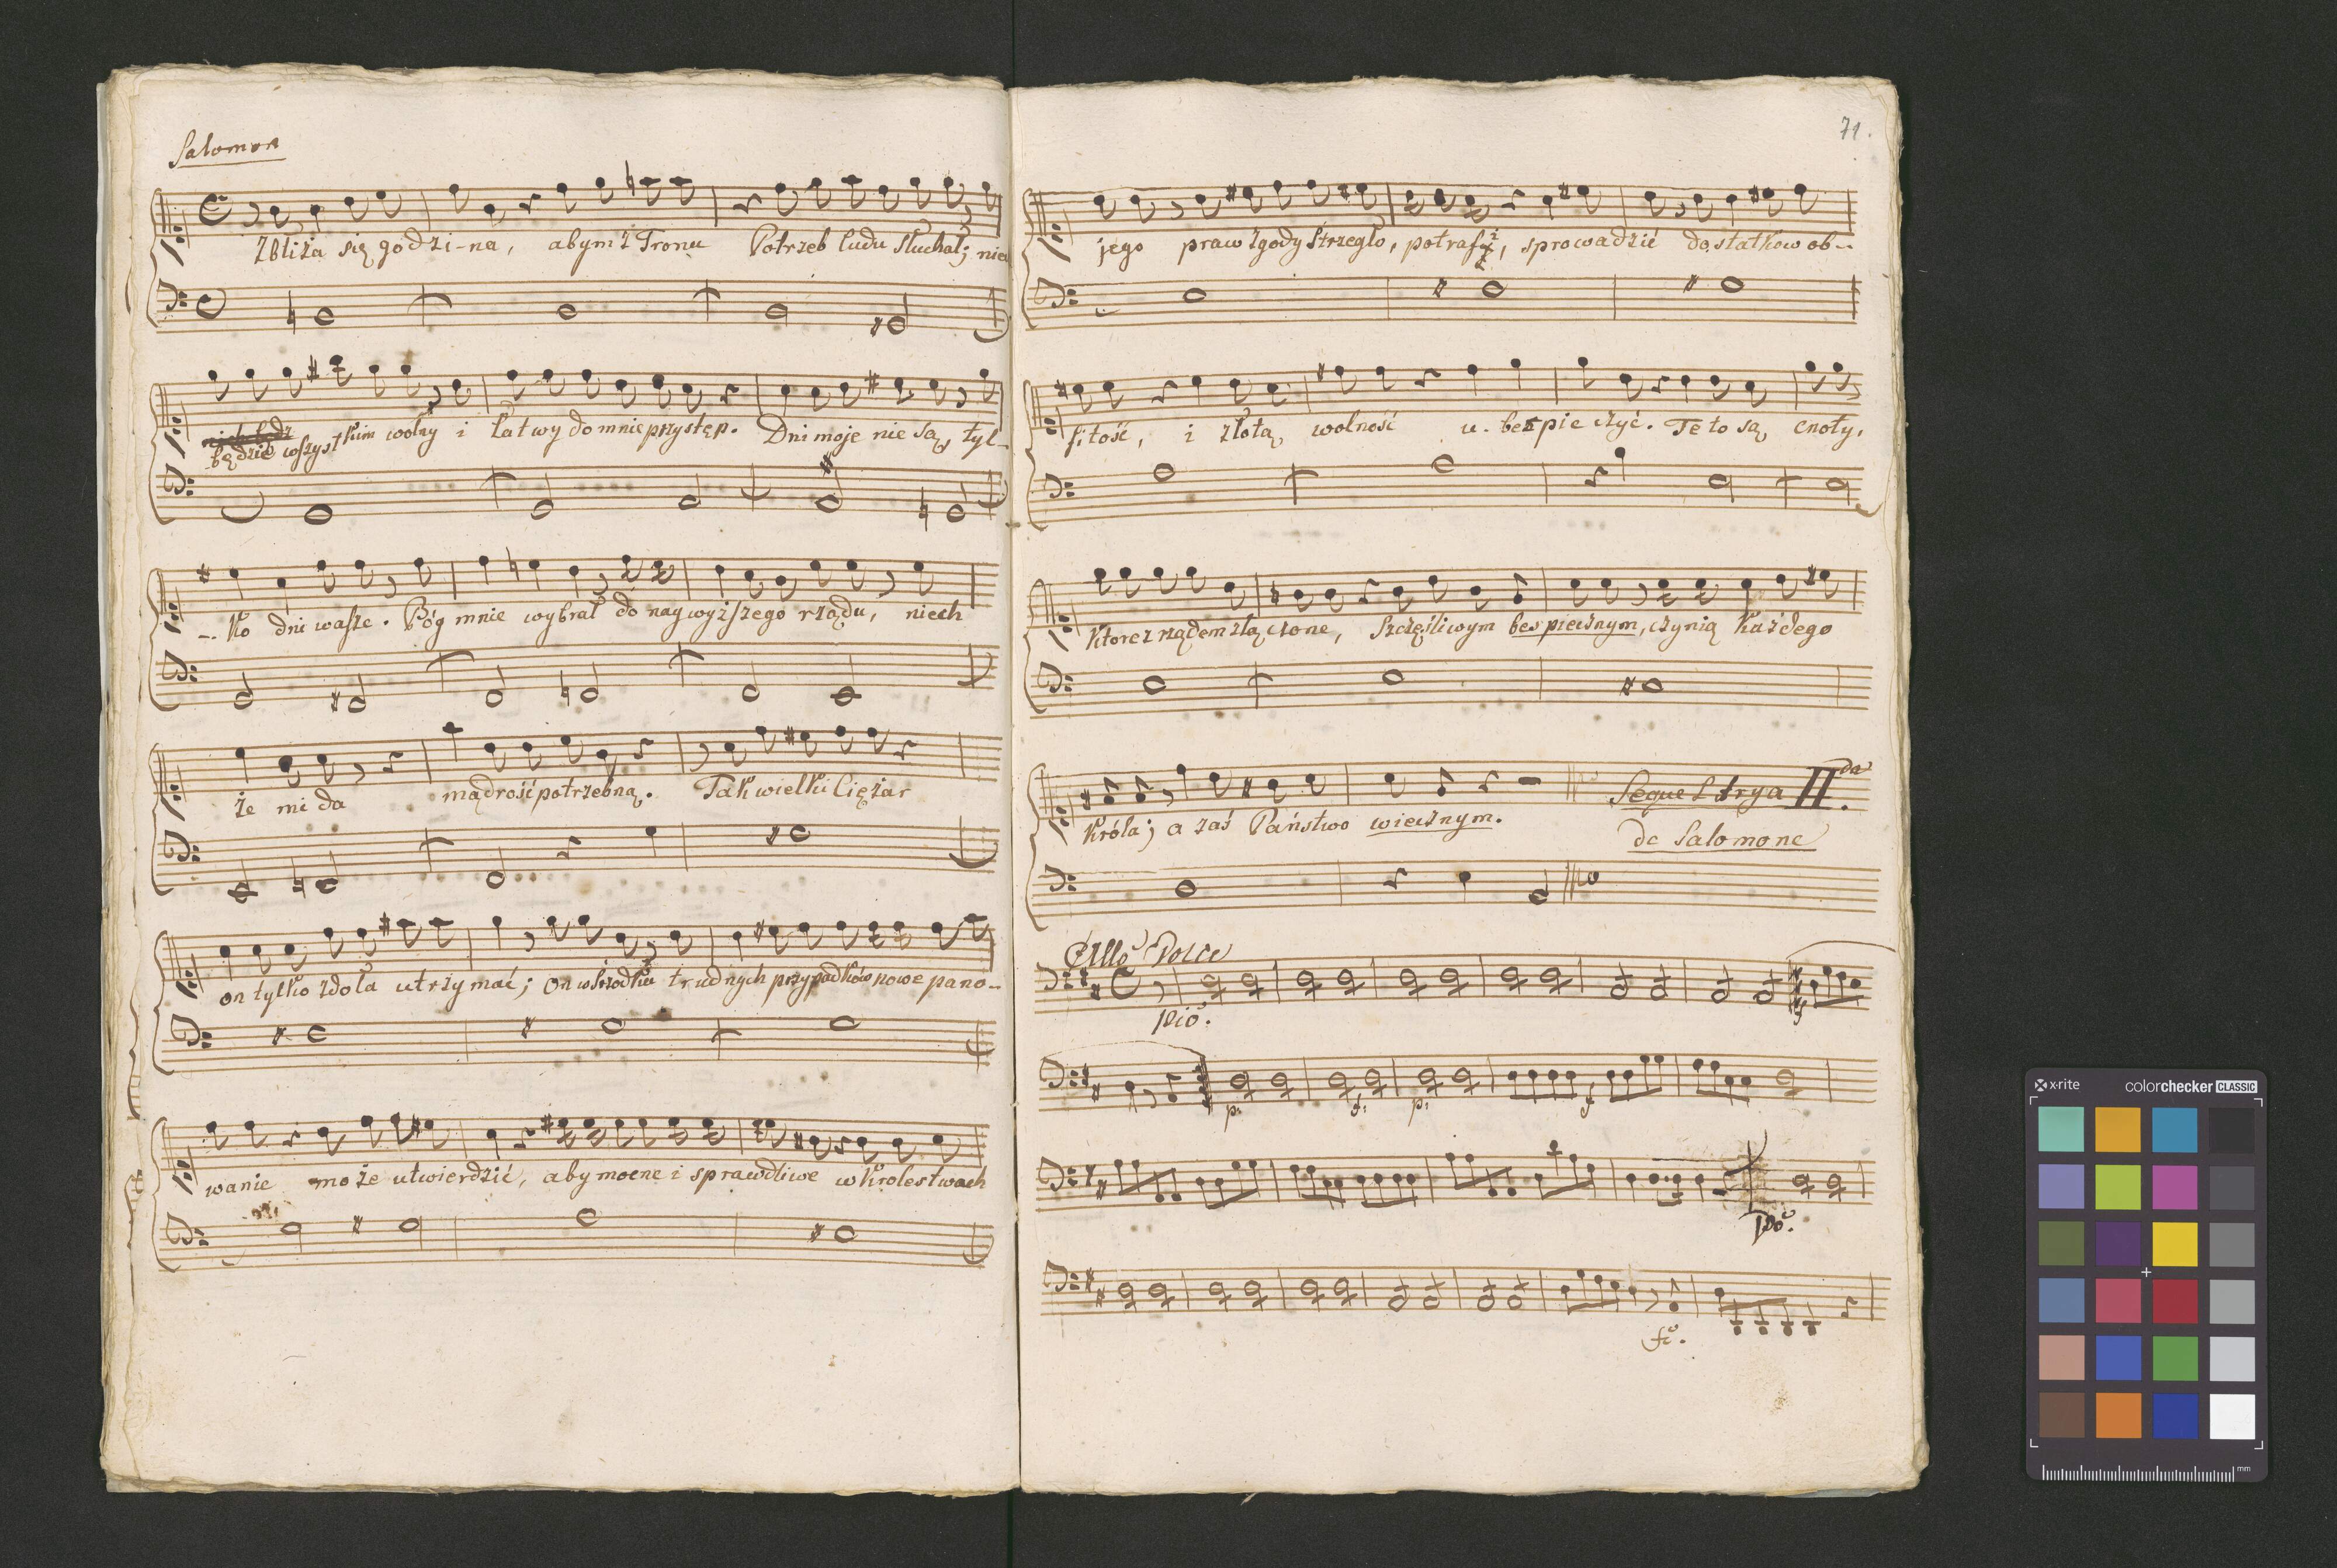 Salomon
Zbliża się godzi-na, abym z Tronu Potrzeb ludu słuchał; niech
niech będz
będzie wszystkim wolny i łatwy do mnie przystęp. Dni moje nie są, tyl-
-ko dni wasze. Bóg mnie wybrał do naywyższego rządu, niech
że mi da mądrość potrzebną. Tak wielki Ciężar
on tylko zdoła utrzymać; on w środku trudnych przypadków nowe pano-
wanie może utwierdzić, aby mocne i sprawdliwe w Krolestwach
71.
jego praw zgody strzegło, potrafi, sprowadzić dostatkow ob-
fitość, i złotą wolność u-bezpieczyć. Te to są cnoty,
ktore z rządem złączone, Szczęśliwym bespiecznym, czynią każdego
Króla; a zaś Państwo wiecznym.
Segue L Arya II.da
de Salomone
Allo Dolce
pio.
f
p: f: p: f
Po.
fe.
x·rite colorchecker CLASSIC
mm